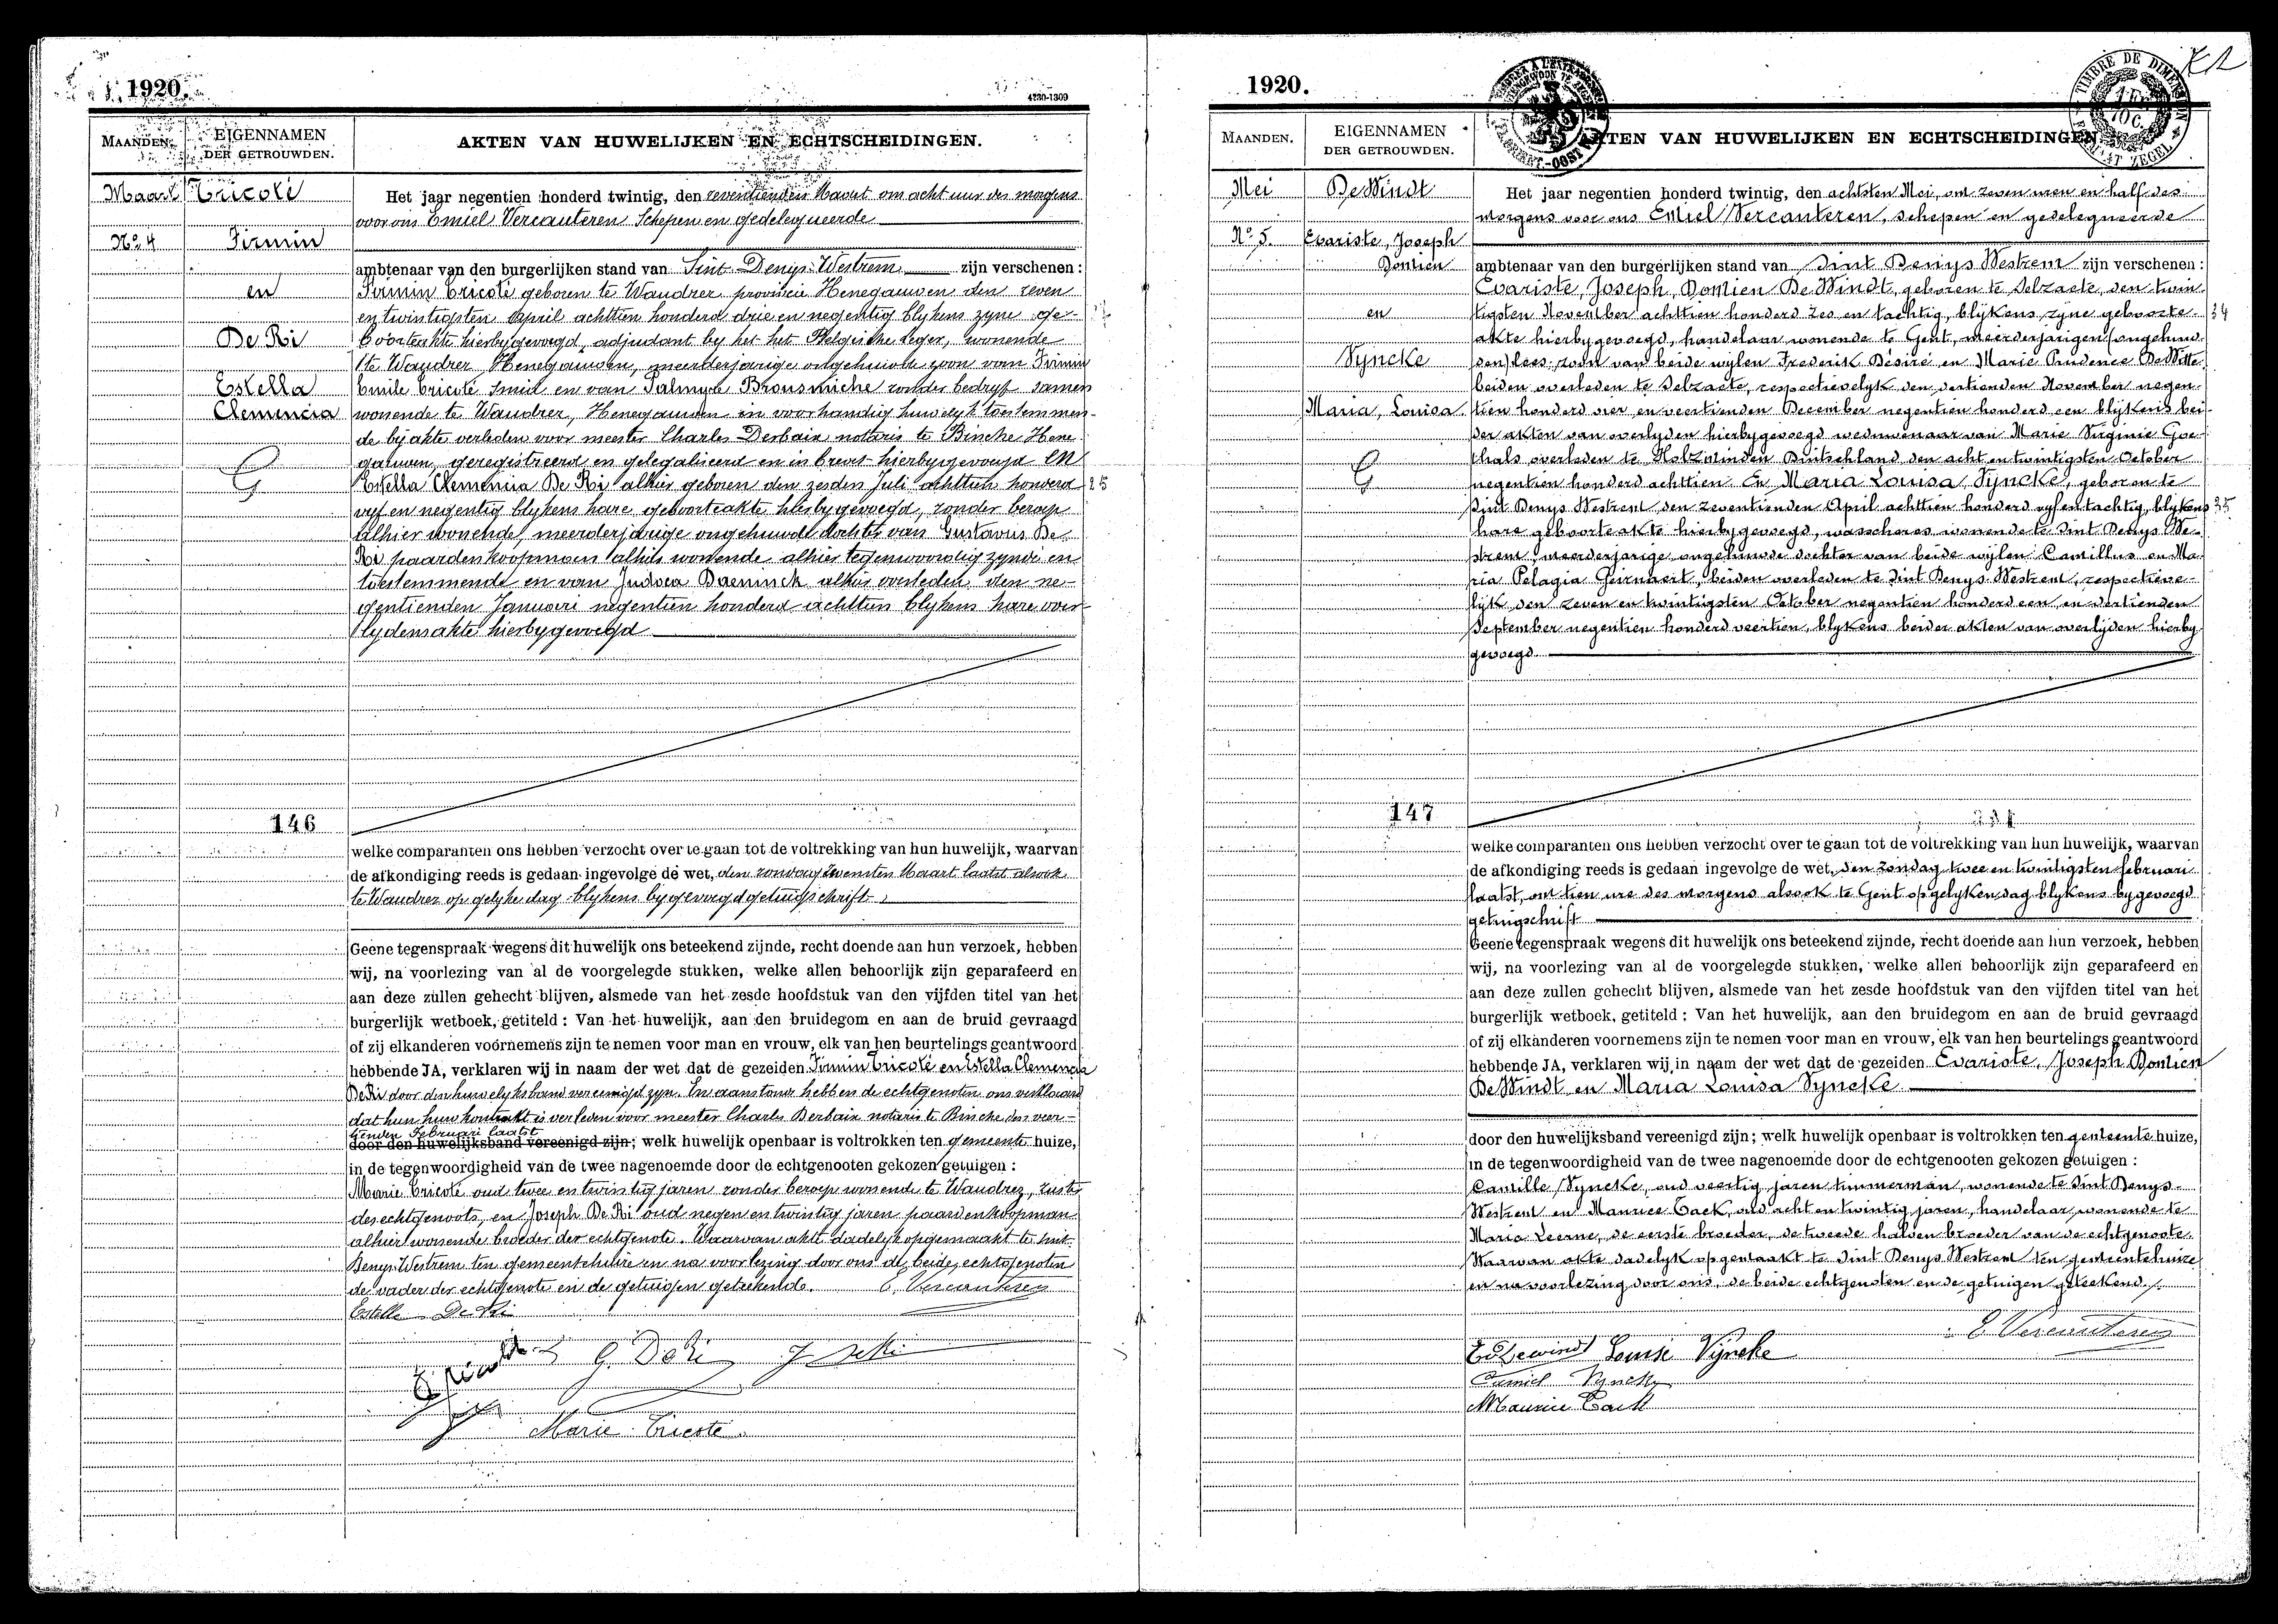 1920.
4230-1309
MAANDEN.
EIGENNAMEN
DER GETROUWDEN.
AKTEN VAN HUWELIJKEN EN ECHTSCHEIDINGEN.
Maart
Tricoté
No 4
Firmin
en
De Ri
Estella
Clemencia
146
Het jaar negentien honderd twintig, den zeventienden Maart om acht ure des morgens
voor ons Emiel Vercauteren Schepen en gedelegueerde
ambtenaar van den burgerlijken stand van Sint Denys-Westrem zijn verschenen:
Firmin Tricoté geboren te Waudrez provincie Henegauwen den zeven
en twintigsten April achttien honderd drie en negentig blykens zyne ge-
boorteakte hierbygevoegd, adjudant by het het Belgische leger, wonende
te Waudrez Henegauwen, meerderjarige ongehuwde zoon van Firmin
Emile Tricoté smid en van Palmyre Brousmiche zonder bedryf samen
wonende te Waudrez, Henegauwen in voorhandig huwelyk toestemmen-
de bij akte verleden voor meester Charles Derbaix notaris te Binche Hene
gauwen, geregistreerd en gelegaliseerd en in brevet hierbygevoegd EN
Estella Clemencia De Ri alhier geboren den zesden Juli achttien honderd 25
vyf en negentig blykens hare geboorteakte hierbygevoegd, zonder beroep
alhier wonende, meerderjarige ongehuwde dochter van Gustavus De
Ri paardenkoopman alhier wonende alhier tegenwoordig zynde en
toestemmende en van Judoca Daeninck alhier overleden den ne-
gentienden Januari negentien honderd achttien blykens hare over-
lydensakte hierbygevoegd
welke comparanten ons hebben verzocht over te gaan tot de voltrekking van hun huwelijk, waarvan
de afkondiging reeds is gedaan ingevolge de wet, den zondag zevensten Maart laatst alsook
te Waudrez op gelyke dag blykens bygevoegd getuigschrift
Geene tegenspraak wegens dit huwelijk ons beteekend zijnde, recht doende aan hun verzoek, hebben
wij, na voorlezing van al de voorgelegde stukken, welke allen behoorlijk zijn geparafeerd en
aan deze zullen gehecht blijven, alsmede van het zesde hoofdstuk van den vijfden titel van het
burgerlijk wetboek, getiteld: Van het huwelijk, aan den bruidegom en aan de bruid gevraagd
of zij elkanderen voornemens zijn te nemen voor man en vrouw, elk van hen beurtelings geantwoord
hebbende JA, verklaren wij in naam der wet dat de gezeiden Firmin Tricoté en Estella Clemencia
De Ri door den huwelyksband vereenigd zyn. En aanstonds hebben de echtgenoten ons verklaard
dat hun huwkontrakt is verleden voor meester Charles Derbaix notaris te Binche den veer-
tienden Februari laatst
door den huwelijksband vereenigd zijn; welk huwelijk openbaar is voltrokken ten gemeente huize,
in de tegenwoordigheid van de twee nagenoemde door de echtgenooten gekozen getuigen:
Marie Tricoté oud twee en twintig jaren zonder beroep wonende te Waudrez, zuster
des echtgenoots, en Joseph De Ri oud negen en twintig jaren paardenkoopman
alhier wonende broeder der echtgenote. Waarvan akte dadelyk opgemaakt te Sint
Denys-Westrem ten gemeentehuize en na voorlezing door ons de beide echtgenoten
de vader der echtgenote en de getuigen geteekend. E. Vercauteren
Estella De Ri
G. De Ri J De Ri
Marie Tricoté
1920.
TIMBRE DE DIMENSION
MAANDEN.
EIGENNAMEN
DER GETROUWDEN.
AKTEN VAN HUWELIJKEN EN ECHTSCHEIDINGEN
Mei
De Windt
No 5.
Evariste, Joseph
Donlien
en
Vyncke
Maria, Louisa
147
Het jaar negentien honderd twintig, den achtsten Mei, om zeven uren en half des
morgens voor ons Emiel Vercauteren, schepen en gedelegueerde
ambtenaar van den burgerlijken stand van Sint Denys Westrem zijn verschenen:
Evariste, Joseph, Donlien De Windt, geboren te Selzaete, den twin
tigsten November achttien honderd zes en tachtig, blykens zyne geboorte 34
akte hierbygevoegd, handelaar wonende te Gent, meerderjarigen (ongehuw
den) lees: zoon van beide wylen Frederik Désiré en Marie Prudence De Witte
beiden overleden te Selzaete, respectievelyk den dertienden November negen
tien honderd vier en veertienden December negentien honderd een blykens bei-
der akten van overlyden hierbygevoegd weduwenaar van Marie Virginie Goe-
thals overleden te Holzminden Duitschland den acht en twintigsten October
negentien honderd achttien En Maria Louisa Vyncke, geboren te
Sint Denys Westrem den zeventienden April achttien honderd vyf en tachtig, blykens 35
hare geboorteakte hierbygevoegd, wasscheres wonende te Sint Denys We-
strem, meerderjarige ongehuwde dochter van beide wylen Camillus en Ma-
ria Pelagia Geirnaert, beiden overleden te Sint Denys-Westrem, respectieve-
lijk den zeven en twintigsten October negentien honderd een en dertienden
September negentien honderd veertien, blykens beider akten van overlijden hierby
gevoegd
welke comparanten ons hebben verzocht over te gaan tot de voltrekking van hun huwelijk, waarvan
de afkondiging reeds is gedaan ingevolge de wet, den zondag twee en twintigsten februari
laatst, om tien ure des morgens alsook te Gent op gelyken dag blykens bygevoegd
getuigschrift
Geene tegenspraak wegens dit huwelijk ons beteekend zijnde, recht doende aan hun verzoek, hebben
wij, na voorlezing van al de voorgelegde stukken, welke allen behoorlijk zijn geparafeerd en
aan deze zullen gehecht blijven, alsmede van het zesde hoofdstuk van den vijfden titel van het
burgerlijk wetboek, getiteld: Van het huwelijk, aan den bruidegom en aan de bruid gevraagd
of zij elkanderen voornemens zijn te nemen voor man en vrouw, elk van hen beurtelings geantwoord
hebbende JA, verklaren wij in naam der wet dat de gezeiden Evariste, Joseph Donlien
De Windt en Maria Louisa Vyncke
door den huwelijksband vereenigd zijn; welk huwelijk openbaar is voltrokken ten gemeente huize,
in de tegenwoordigheid van de twee nagenoemde door de echtgenooten gekozen getuigen:
Camille Vyncke, oud veertig jaren timmerman, wonende te Sint Denys-
Westrem en Maurice Tack, oud acht en twintig jaren, handelaar, wonende te
Maria Leerne, de eerste broeder, de tweede halven broeder van de echtgenoote.
Waarvan akte dadelyk opgemaakt te Sint Denys Westrem ten gemeentehuize
en na voorlezing door ons, de beide echtgenoten en de getuigen geteekend.
E Vercauteren
Ev Dewindt Louise Vyncke
Camiel Vyncke
Maurice Tack